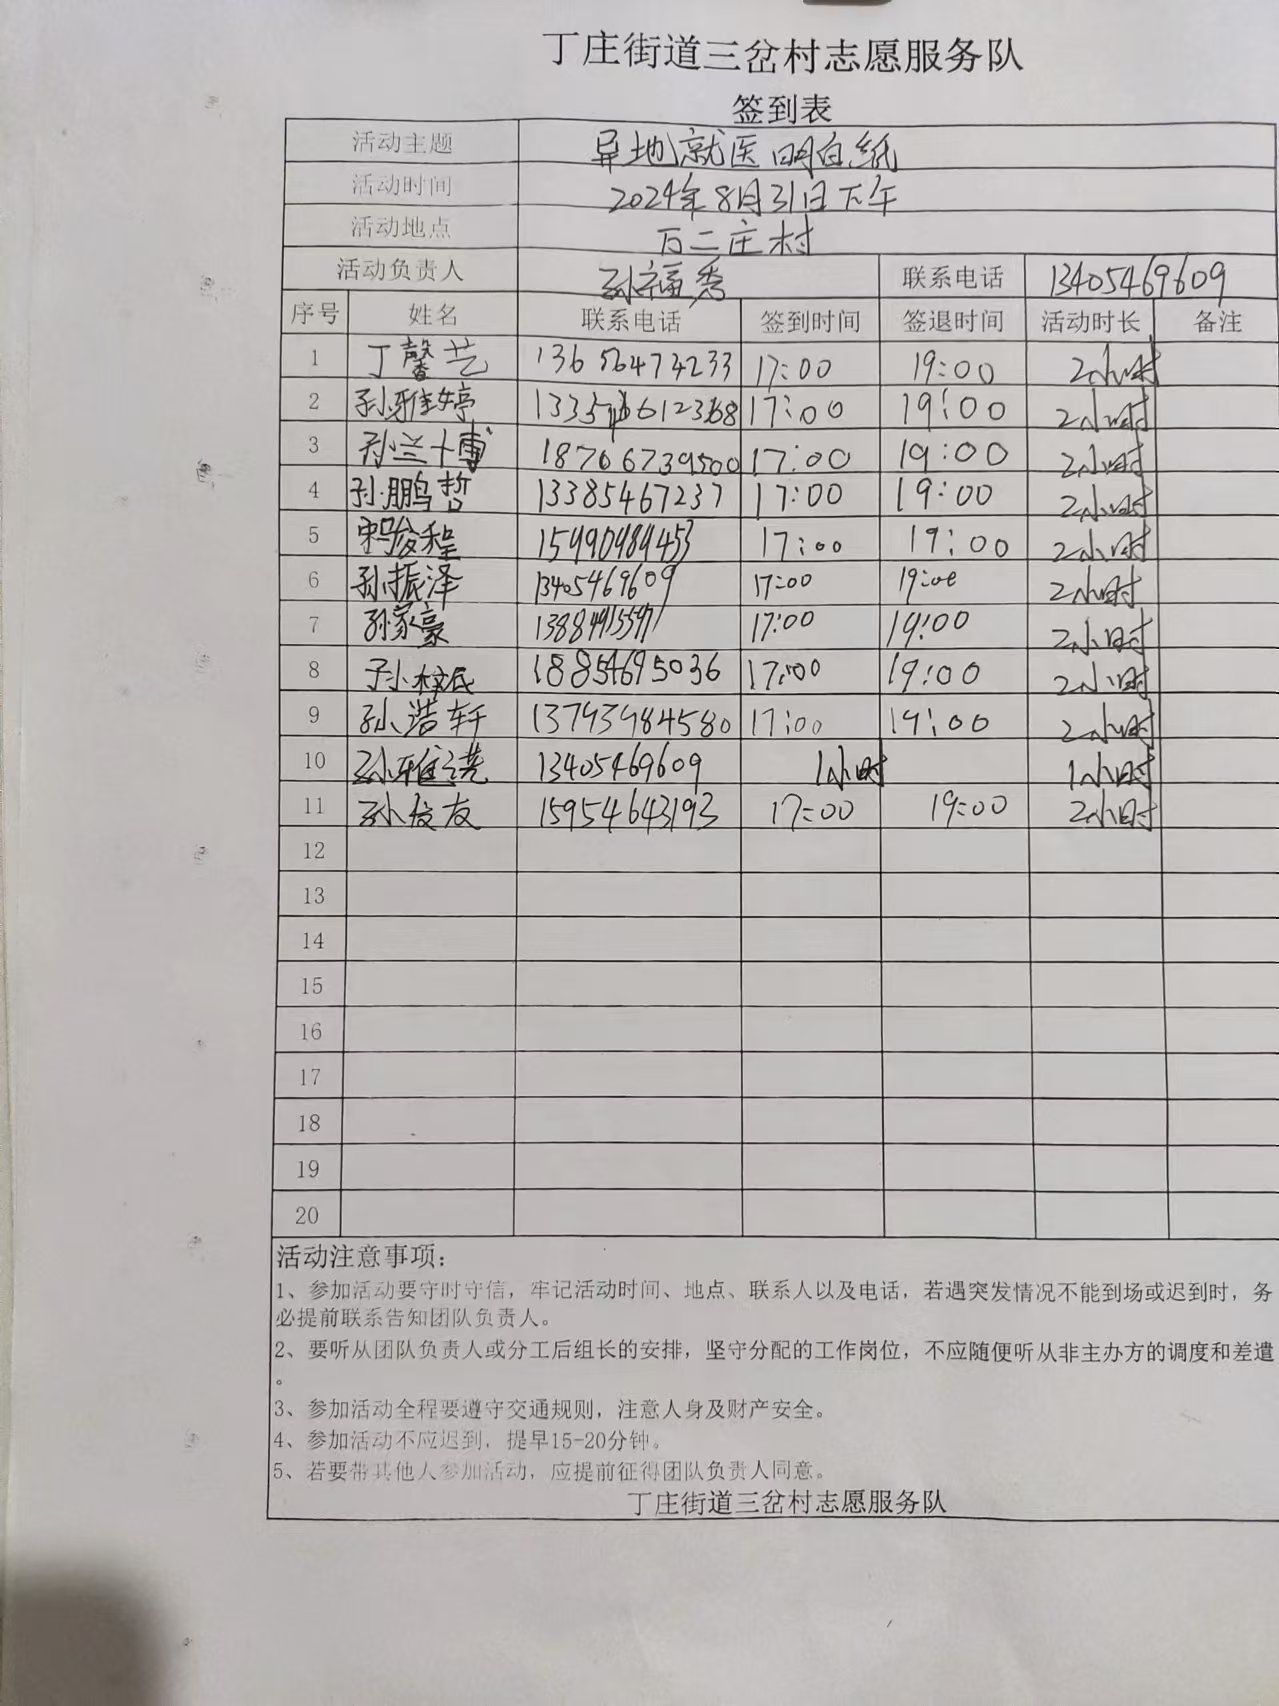 丁庄街道三岔村志愿服务队
签到表
活动主题 异地就医明白纸
活动时间 2024年8月31日下午
活动地点 万二庄村
活动负责人 孙福秀 联系电话 13405469609
序号 姓名 联系电话 签到时间 签退时间 活动时长 备注
1 丁馨艺 13656473233 17:00 19:00 2小时
2 孙雅婷 17:00 19:00 2小时
3 孙兰博 18706739500 17:00 19:00 2小时
4 孙鹏哲 13385467237 17:00 19:00 2小时
5 15990989453 17:00 19:00 2小时
6 孙振泽 13405469609 17:00 19:00 2小时
7 孙家豪 17:00 19:00 2小时
8 18854695036 17:00 19:00 2小时
9 孙浩轩 13793984580 17:00 19:00 2小时
10 13405469609 1小时 1小时
11 15954643193 17:00 19:00 2小时
12
13
14
15
16
17
18
19
20
活动注意事项：
1、参加活动要守时守信，牢记活动时间、地点、联系人以及电话，若遇突发情况不能到场或迟到时，务
必提前联系告知团队负责人。
2、要听从团队负责人或分工后组长的安排，坚守分配的工作岗位，不应随便听从非主办方的调度和差遣
。
3、参加活动全程要遵守交通规则，注意人身及财产安全。
4、参加活动不应迟到，提早15-20分钟。
5、若要带其他人参加活动，应提前征得团队负责人同意。
丁庄街道三岔村志愿服务队